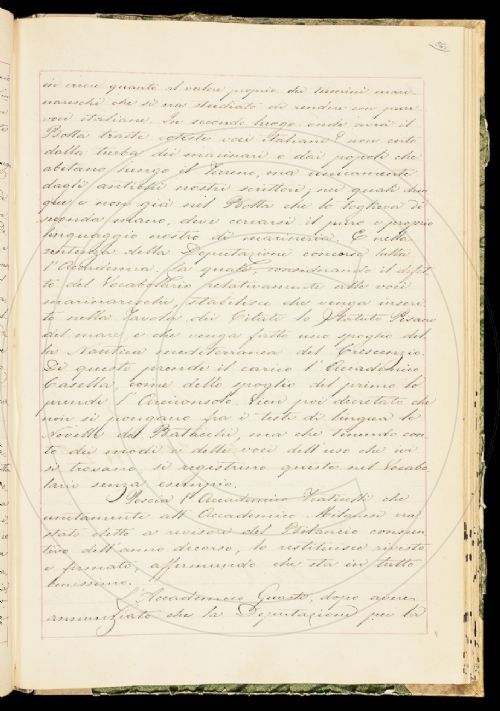 in esse quanto al valore proprio dei termini mari
nareschi che si era studiato di rendere con pure
voci italiane. In secondo luogo onde avea il
Botta tratte coteste voci italiane? non certo
dalla turba dei marinari e dai popoli che
abitano lungo il Tirreno, ma unicamente
dagli antichi nostri scrittori, nei quali dun
que, e non già nel Botta che le toglieva di
seconda mano, deve cercarsi il puro e proprio
linguaggio nostro di marineria. E nella
sentenza della Deputazione concorse tutta
l'Accademia, la quale, considerando il difet
to del Vocabolario relativamente alle voci
marinaresche, stabilisce che venga inseri
to nella Tavola dei Citati lo Statuto Pisano
del mare, e che venga fatto uno spoglio del
la Nautica mediterranea del Crescenzio.
Di questo prende il carico l'Accademico
Casella, come dello spoglio del primo lo
prende l'Arciconsolo. Vien poi decretato che
non si pongano fra i testi di lingua le
Novelle del Batacchi, ma che tenendo con
to dei modi e delle voci dell'uso che ivi
si trovano, si registrino queste nel Vocabo
lario senza esempio.
Poscia l'Accademico Fraticelli che
unitamente all'Accademico Milanesi era
stato eletto a revisore del Bilancio consun
tivo dell'anno decorso, lo restituisce rivisto
e firmato, affermando che sta in tutto
benissimo.
L'Accademico Guasti, dopo avere
annunziato che la Deputazione per la